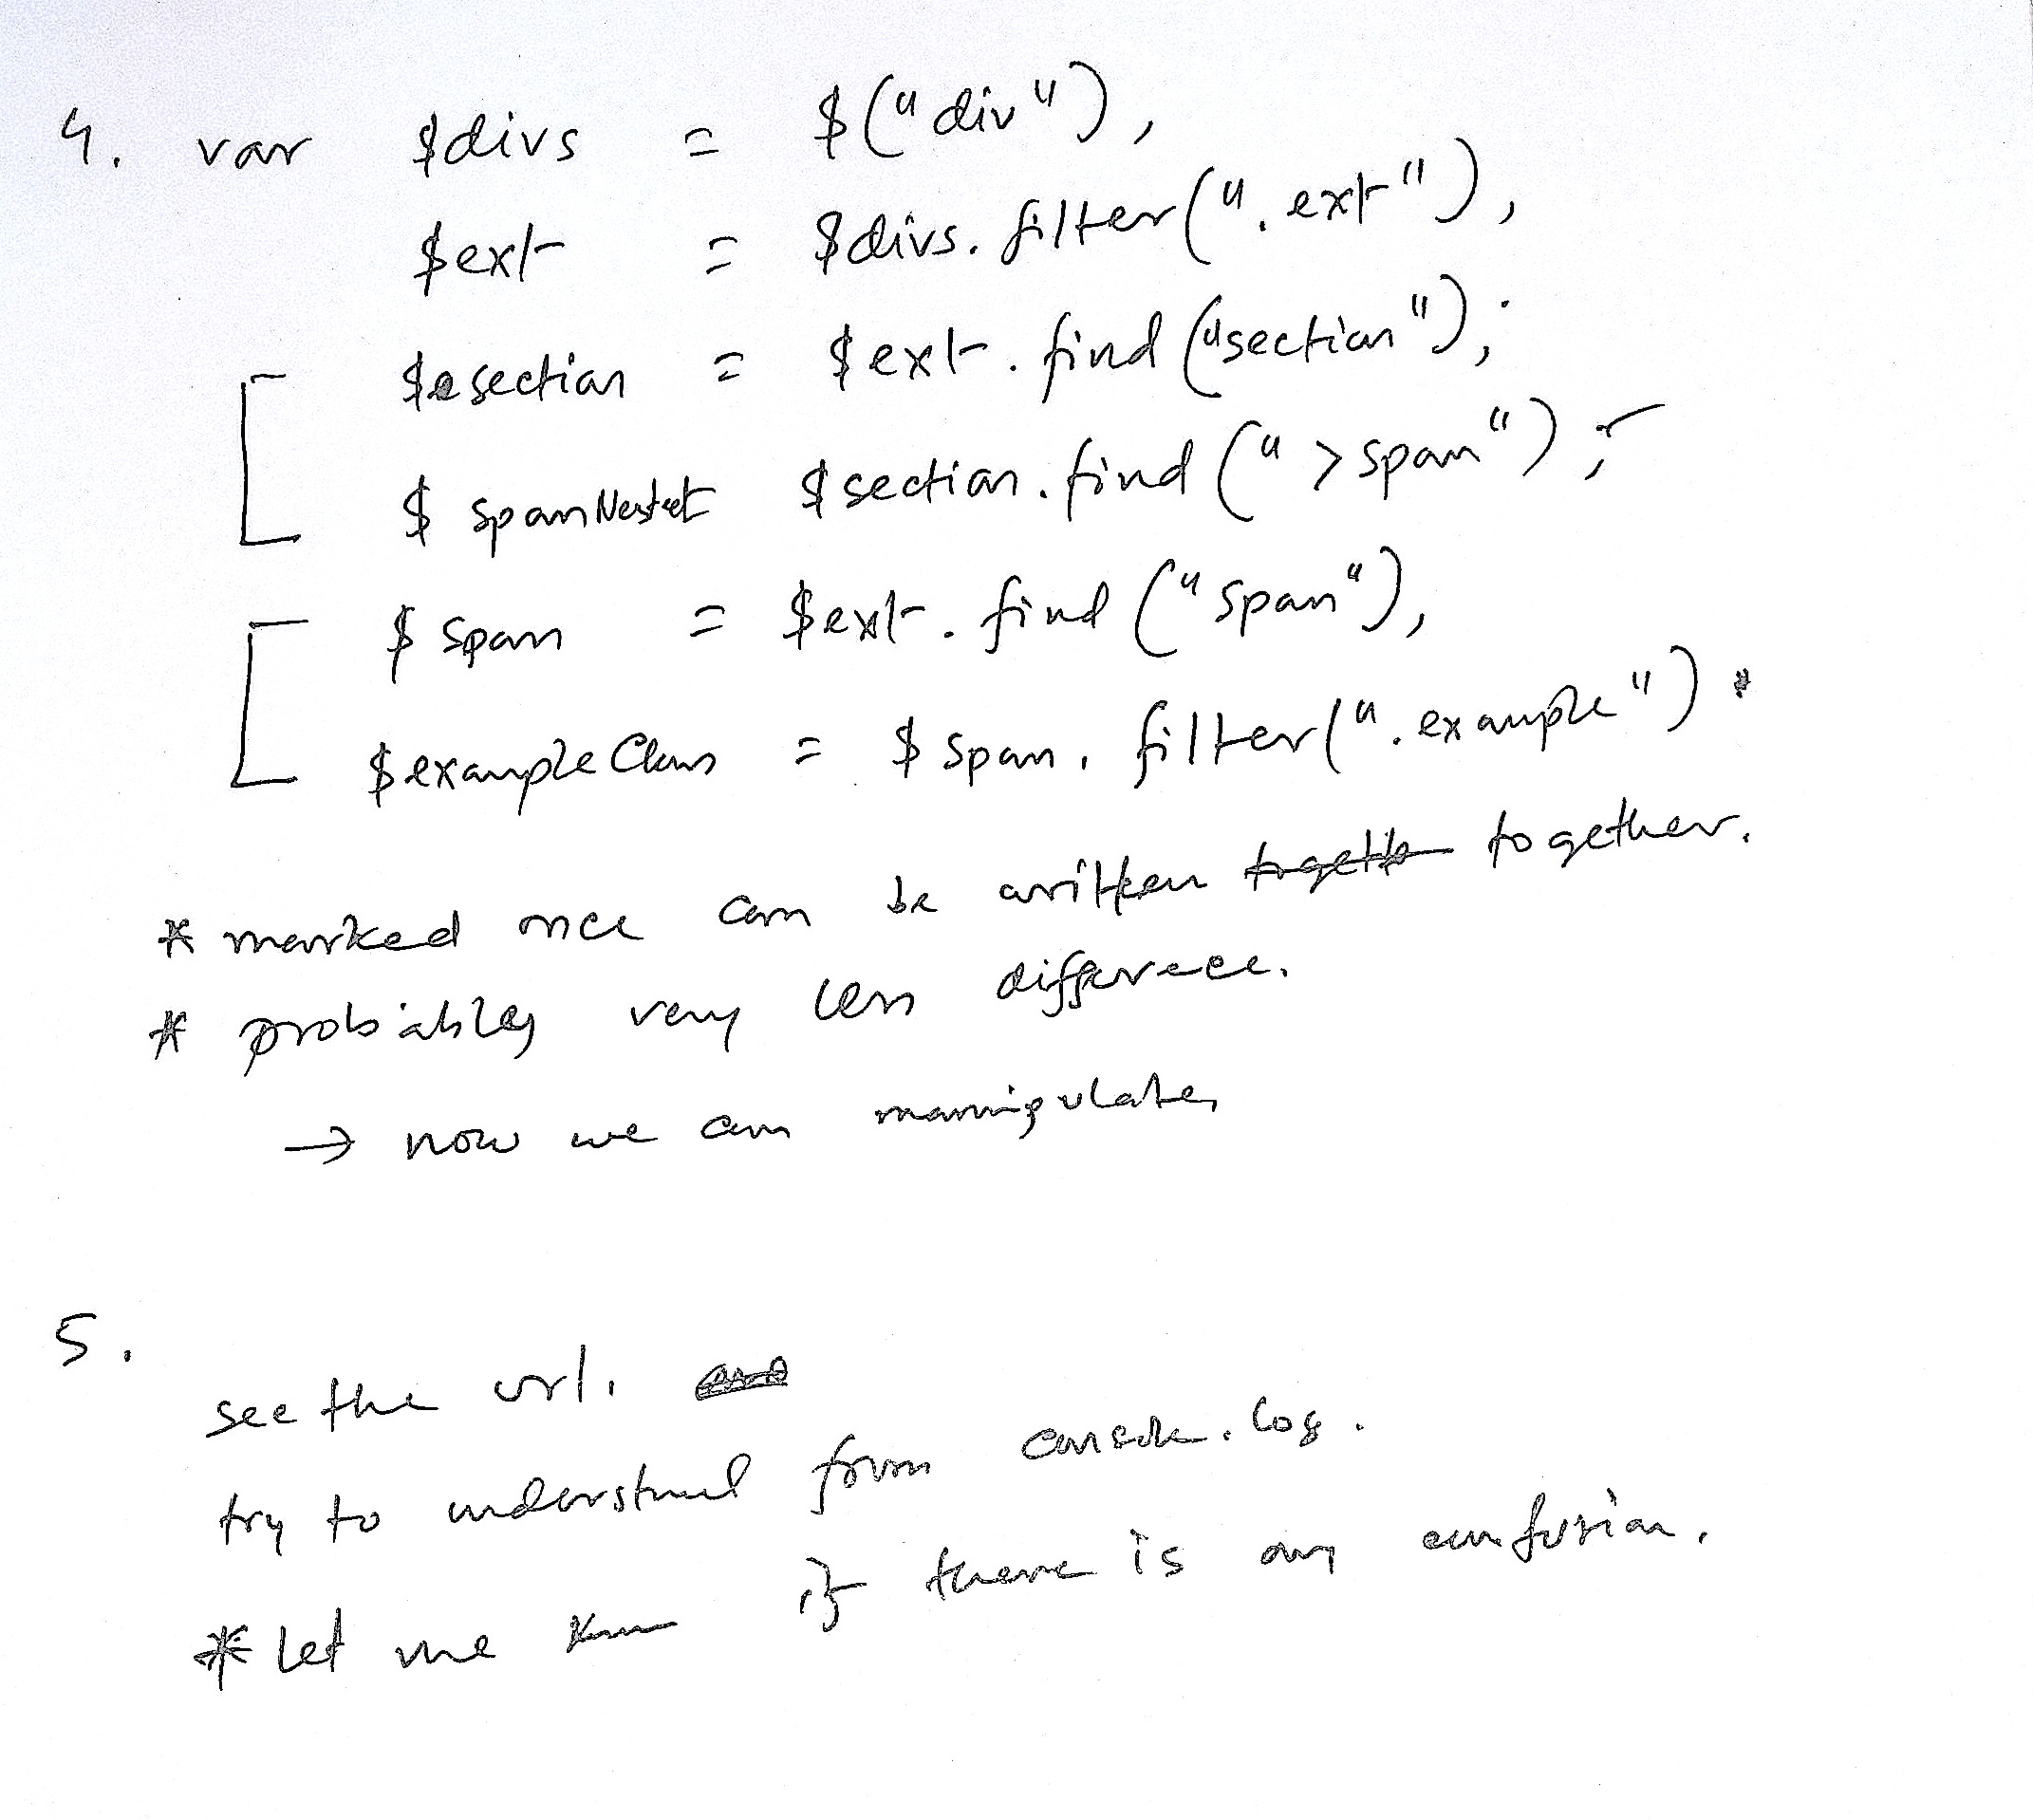 4. var $divs = $("div"),
$ext = $divs.filter(".ext"),
$section = $ext.find("section");
$spanNested $section.find(">span");
$span = $ext.find("span"),
$exampleClass = $span.filter(".example")
* marked once can be written together.
* probably very less difference.
→ now we can manipulate,
5.
see the url.
try to understand from console.log.
* Let me know if there is any confusion.